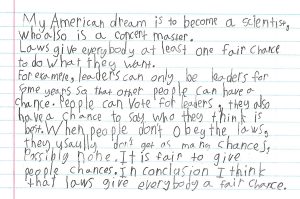 My American dream is to become a scientist,
who also is a concert master.
Laws give everybody at least one fair chance
to do what they want.
For example, leaders can only be leaders for
some years so that other people can have a
chance. People can vote for leaders, they also
have a chance to say who they think is
best. When people don't obey the laws,
they usually don't get as many chances,
possibly none. It is fair to give
people chances. In conclusion I think
that laws give everybody a fair chance.